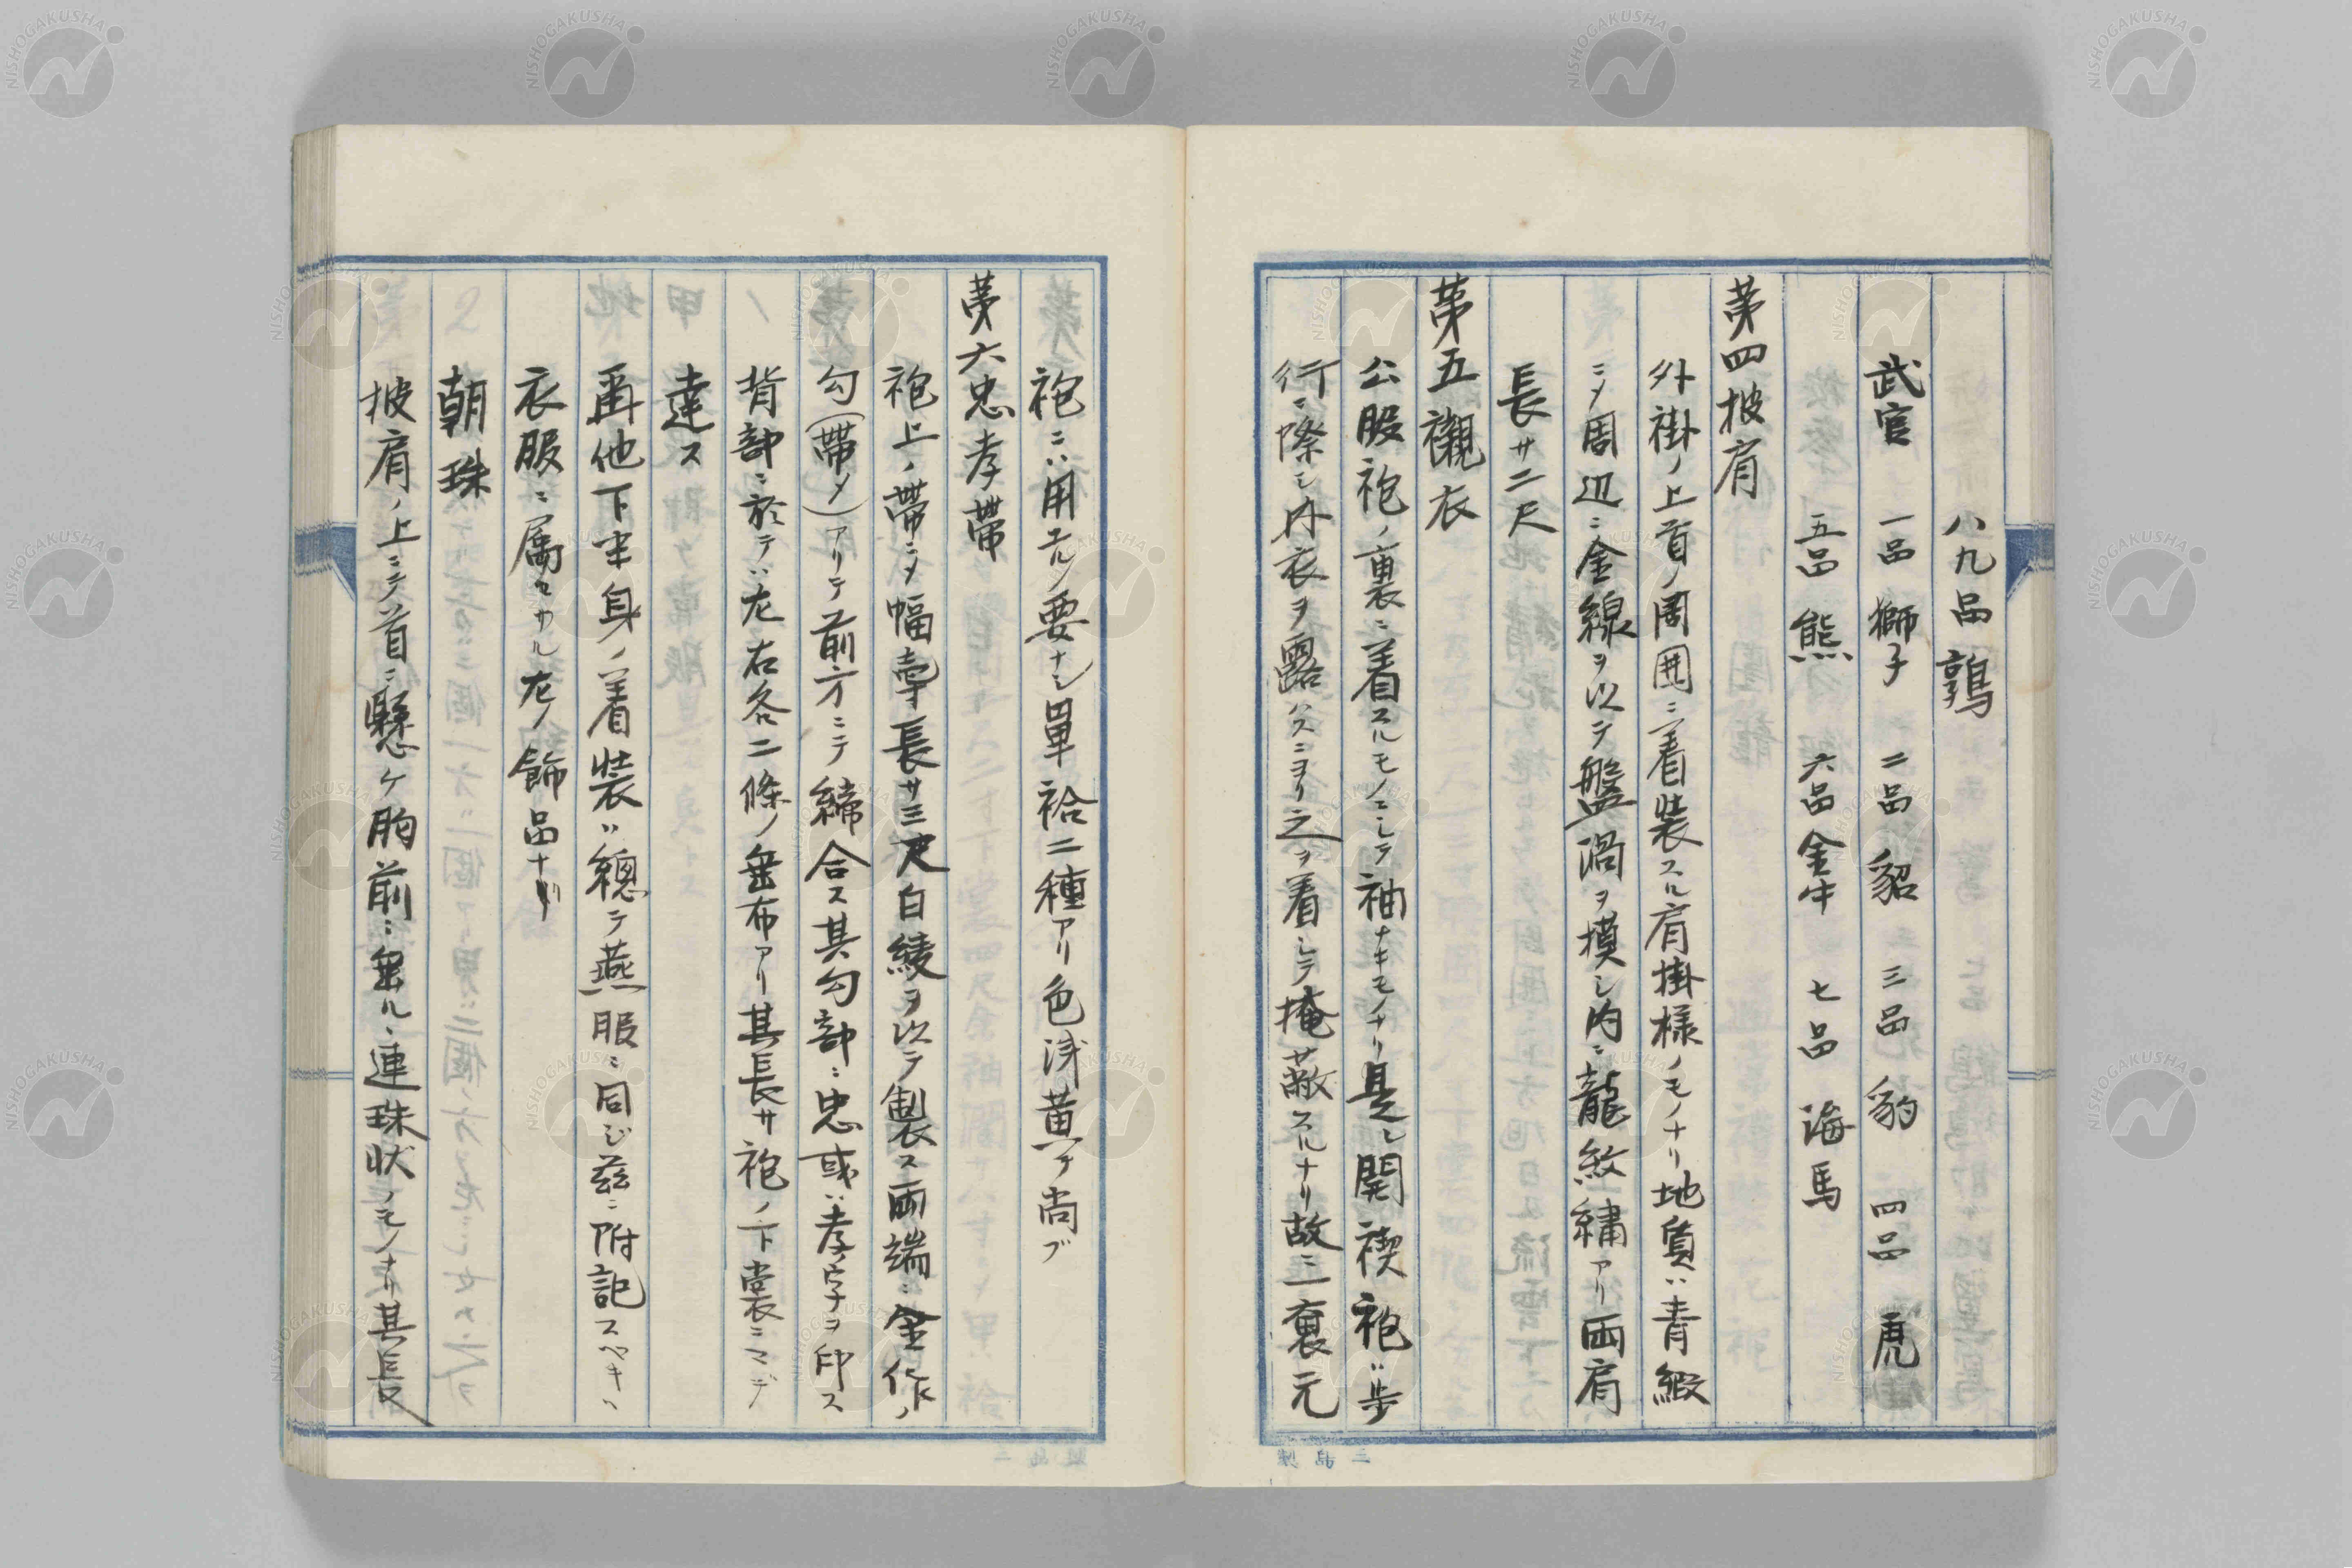 八九品 鶉
武官 一品 獅子 二品 貂 三品 豹 四品 虎
五品 熊 六品 金牛 七品 海馬
第四披肩
外褂ノ上首ノ周囲ニ着装スル肩掛様ノモノナリ地質ハ青緞
ニメ周辺ニ金線ヲ以テ盤渦ヲ模シ内ニ龍紋繍アリ両肩
長サ二尺
第五襯衣
公服袍ノ裏ニ着スルモノニシテ袖ナキモノナリ是レ開禊袍ハ歩
行ニ際シ内衣ヲ露ハスニヨリ之ヲ着シテ掩蔽スルナリ故ニ裏元
袍ニハ用ユルノ要ナシ単袷二種アリ色浅黄ヲ尚ブ
第六忠孝帯
袍上ノ帯ニメ幅壱寸長サ三尺白綾ヲ以テ製ス両端ニ金作ノ
勾(帯〆)アリテ前方ニテ締合ス其勾部ニ忠或ハ孝ノ字ヲ印ス
背部ニ於テハ左右各二條ノ垂布アリ其長サ袍ノ下裳ニマデ
達ス
再他下半身ノ着装ハ總テ燕服ニ同ジ茲ニ附記スベキハ
衣服ニ属セサル左ノ飾品ナリ
朝珠
披肩ノ上ニテ首ニ懸ケ胸前ニ垂ル丶連珠状ノモノナリ其長
NISHOGAKUSHA